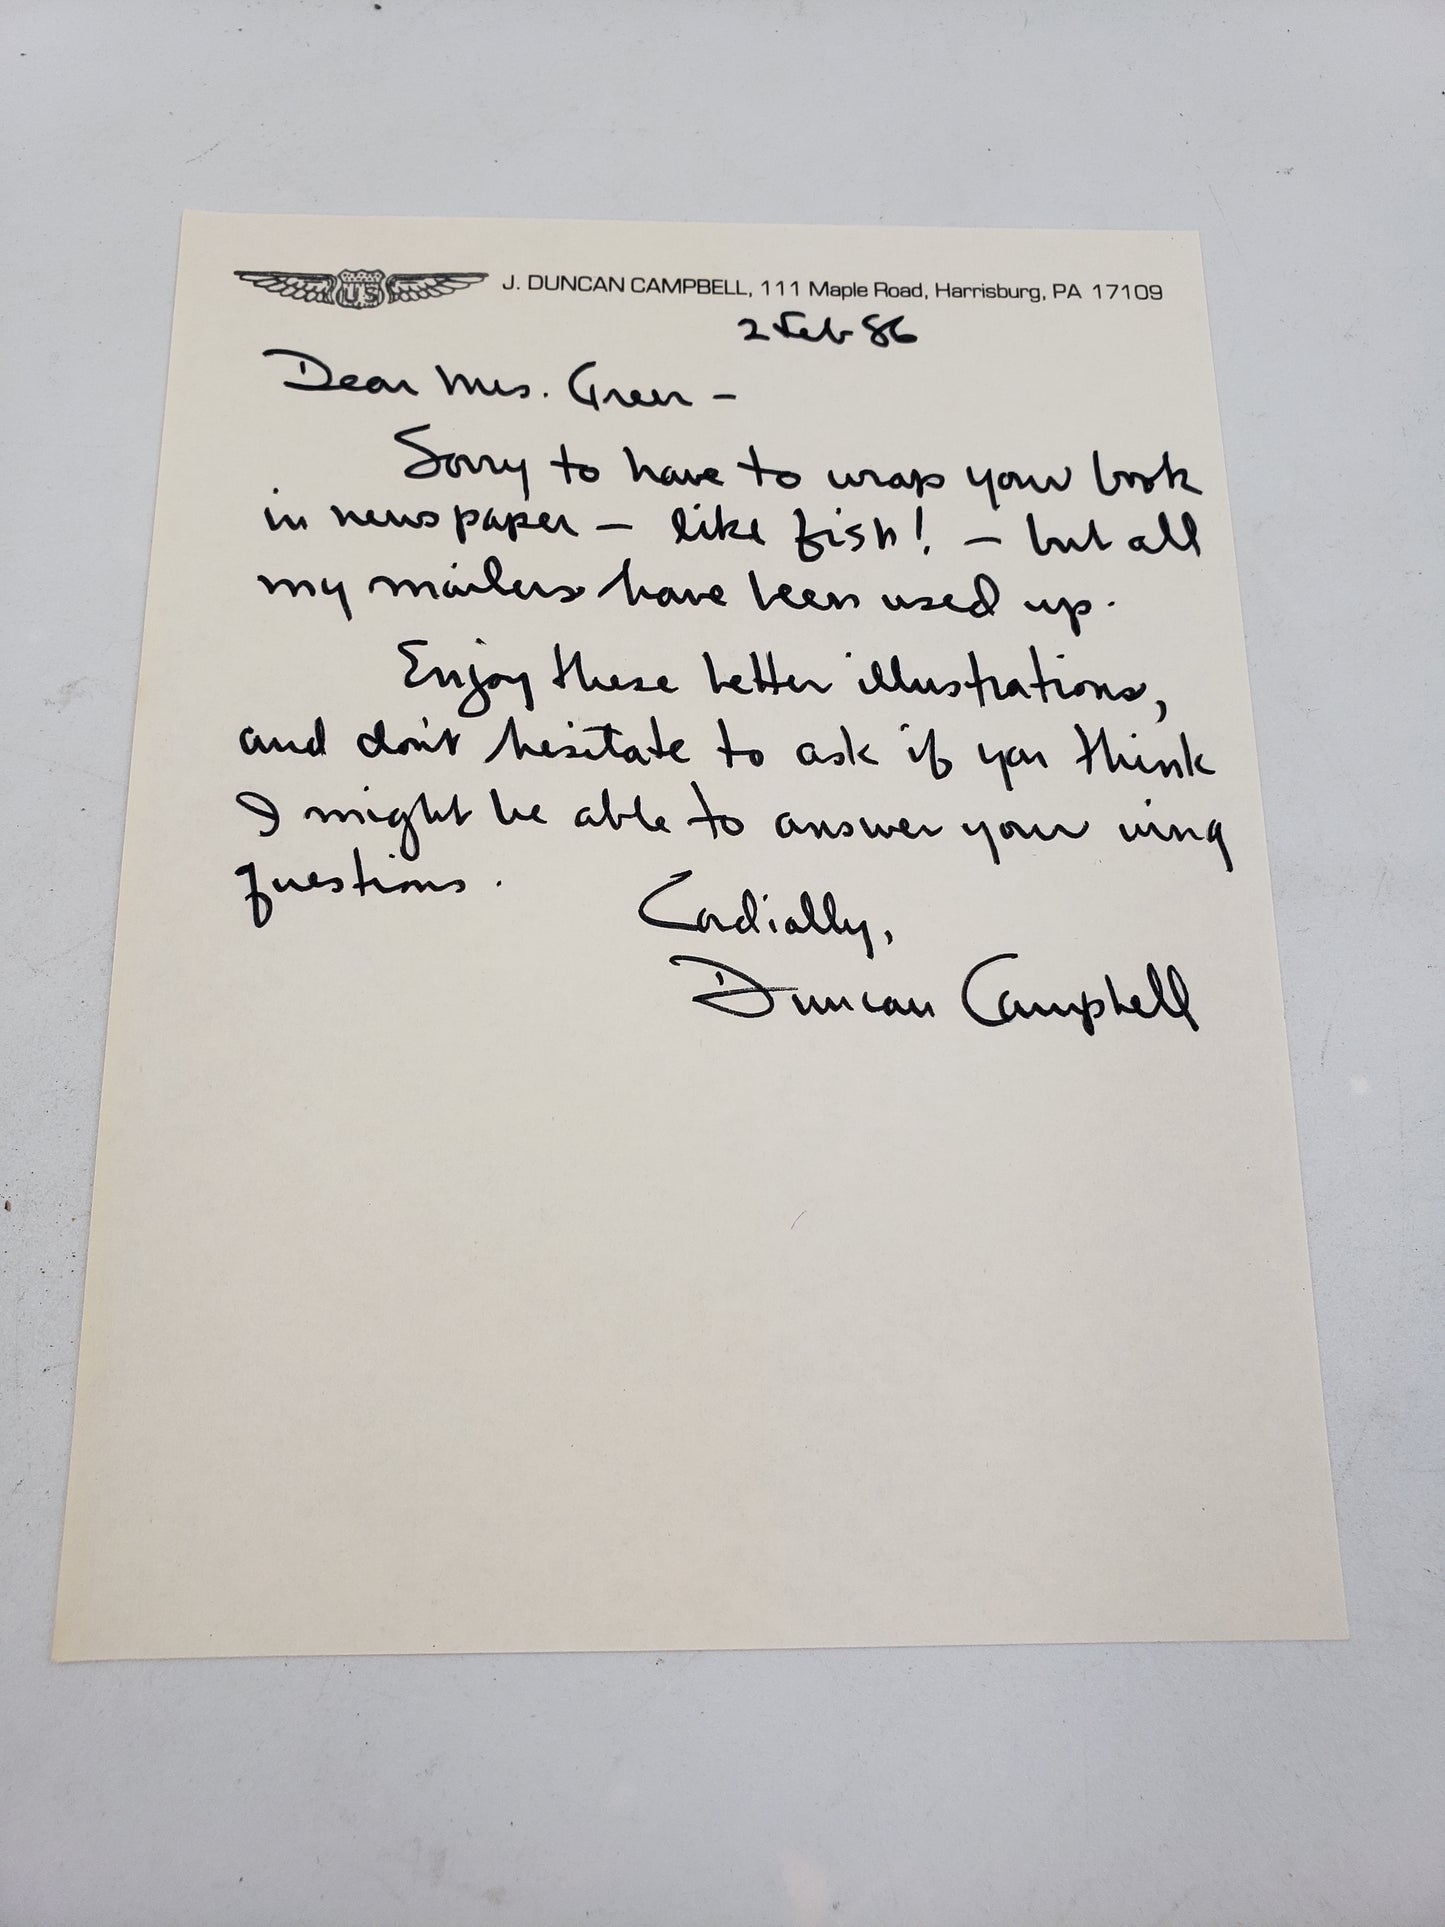 US J. DUNCAN CAMPBELL, 111 Maple Road, Harrisburg, PA 17109
2 Feb 86
Dear Mrs. Green –
Sorry to have to wrap your book
in newspaper – like fish! – but all
my mailers have been used up.
Enjoy these better illustrations,
and don't hesitate to ask if you think
I might be able to answer your wing
questions.
Cordially,
Duncan Campbell